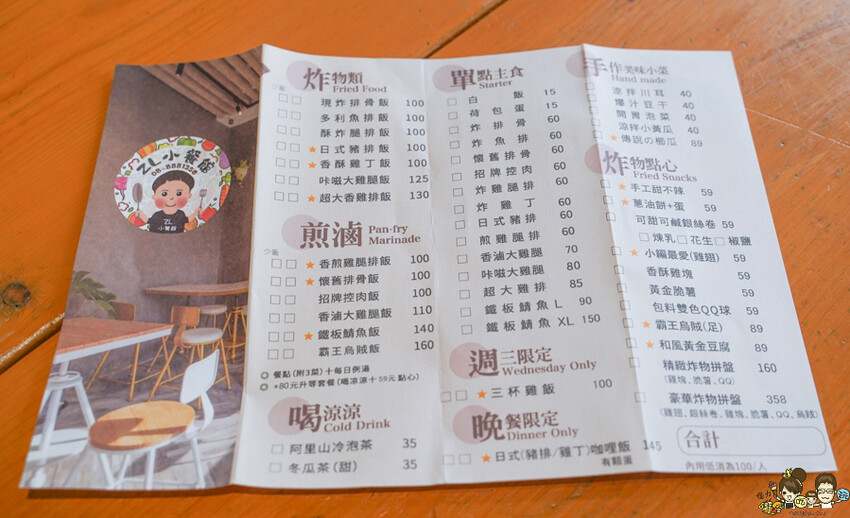 ZL小餐館
08-8881358
ZL
小餐館
炸物類
Fried Food
少飯
現炸排骨飯 100
多利魚排飯 100
酥炸腿排飯 100
★日式豬排飯 100
★香酥雞丁飯 100
咔滋大雞腿飯 125
★超大香雞排飯 130
煎滷 Pan-fry
Marinade
少飯
★香煎雞腿排飯 100
★懷舊排骨飯 100
招牌控肉飯 100
香滷大雞腿飯 110
★鐵板鯖魚飯 140
霸王烏賊飯 160
◎ 餐點(附3菜)+每日例湯
◎ +80元升等套餐(喝涼涼+59元 點心)
喝涼涼
Cold Drink
阿里山冷泡茶 35
冬瓜茶(甜) 35
單點主食
Starter
白飯 15
荷包蛋 15
炸排骨 60
炸魚排 60
懷舊排骨 60
招牌控肉 60
炸雞腿排 60
炸雞丁 60
日式豬排 60
煎雞腿排 60
香滷大雞腿 70
咔滋大雞腿 80
超大雞排 85
鐵板鯖魚 L 90
鐵板鯖魚 XL 150
週三限定
Wednesday Only
★三杯雞飯 100
晚餐限定
Dinner Only
★日式(豬排/雞丁)咖哩飯 145
有顆蛋
手作美味小菜
Hand made
涼拌川耳 40
爆汁豆干 40
開胃泡菜 40
涼拌小黃瓜 40
★傳說の櫛瓜 89
炸物點心
Fried Snacks
★手工甜不辣 59
★蔥油餅+蛋 59
可甜可鹹銀絲卷 59
□煉乳□花生□椒鹽
★小編最愛(雞翅) 59
香酥雞塊 59
黃金脆薯 59
包料雙色QQ球 59
★霸王烏賊(足) 89
★和風黃金豆腐 89
精緻炸物拼盤 160
(雞塊、脆薯、QQ)
豪華炸物拼盤 358
(雞翅、銀絲卷、雞塊、脆薯、QQ、烏賊)
合計
內用低消為100/人